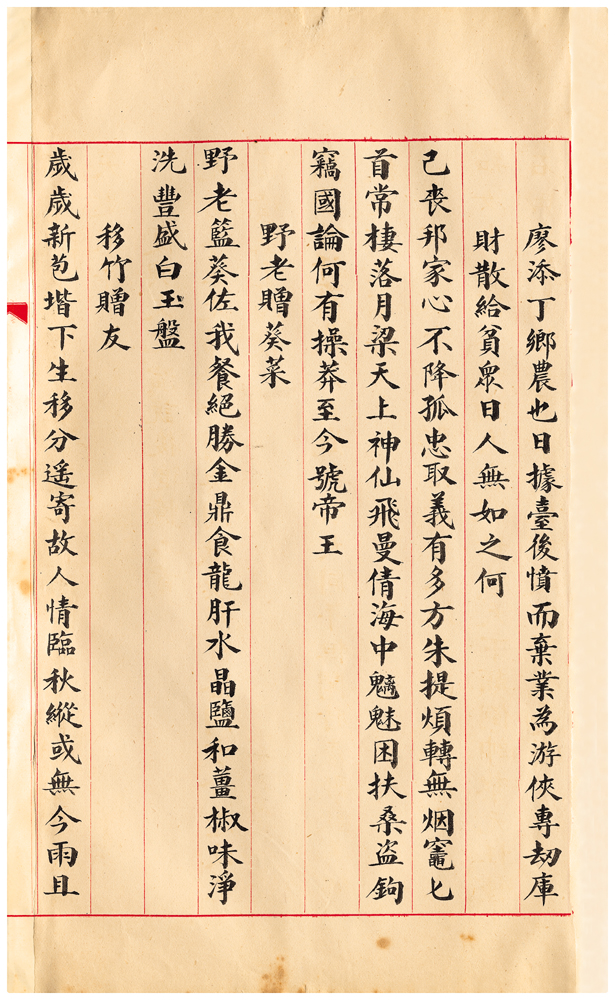 廖添丁鄉農也日據臺後憤而棄業為游俠專劫庫
財散給貧眾日人無如之何
已喪邦家心不降孤忠取義有多方朱提煩轉無烟竈匕
首常棲落月梁天上神仙飛曼倩海中魑魅困扶桑盜鉤
竊國論何有操莽至今號帝王
野老贈葵菜
野老籃葵佐我餐絕勝金鼎食龍肝水晶鹽和薑椒味淨
洗豐盛白玉盤
移竹贈友
歲歲新苞堦下生移分遙寄故人情臨秋縱或無今雨且